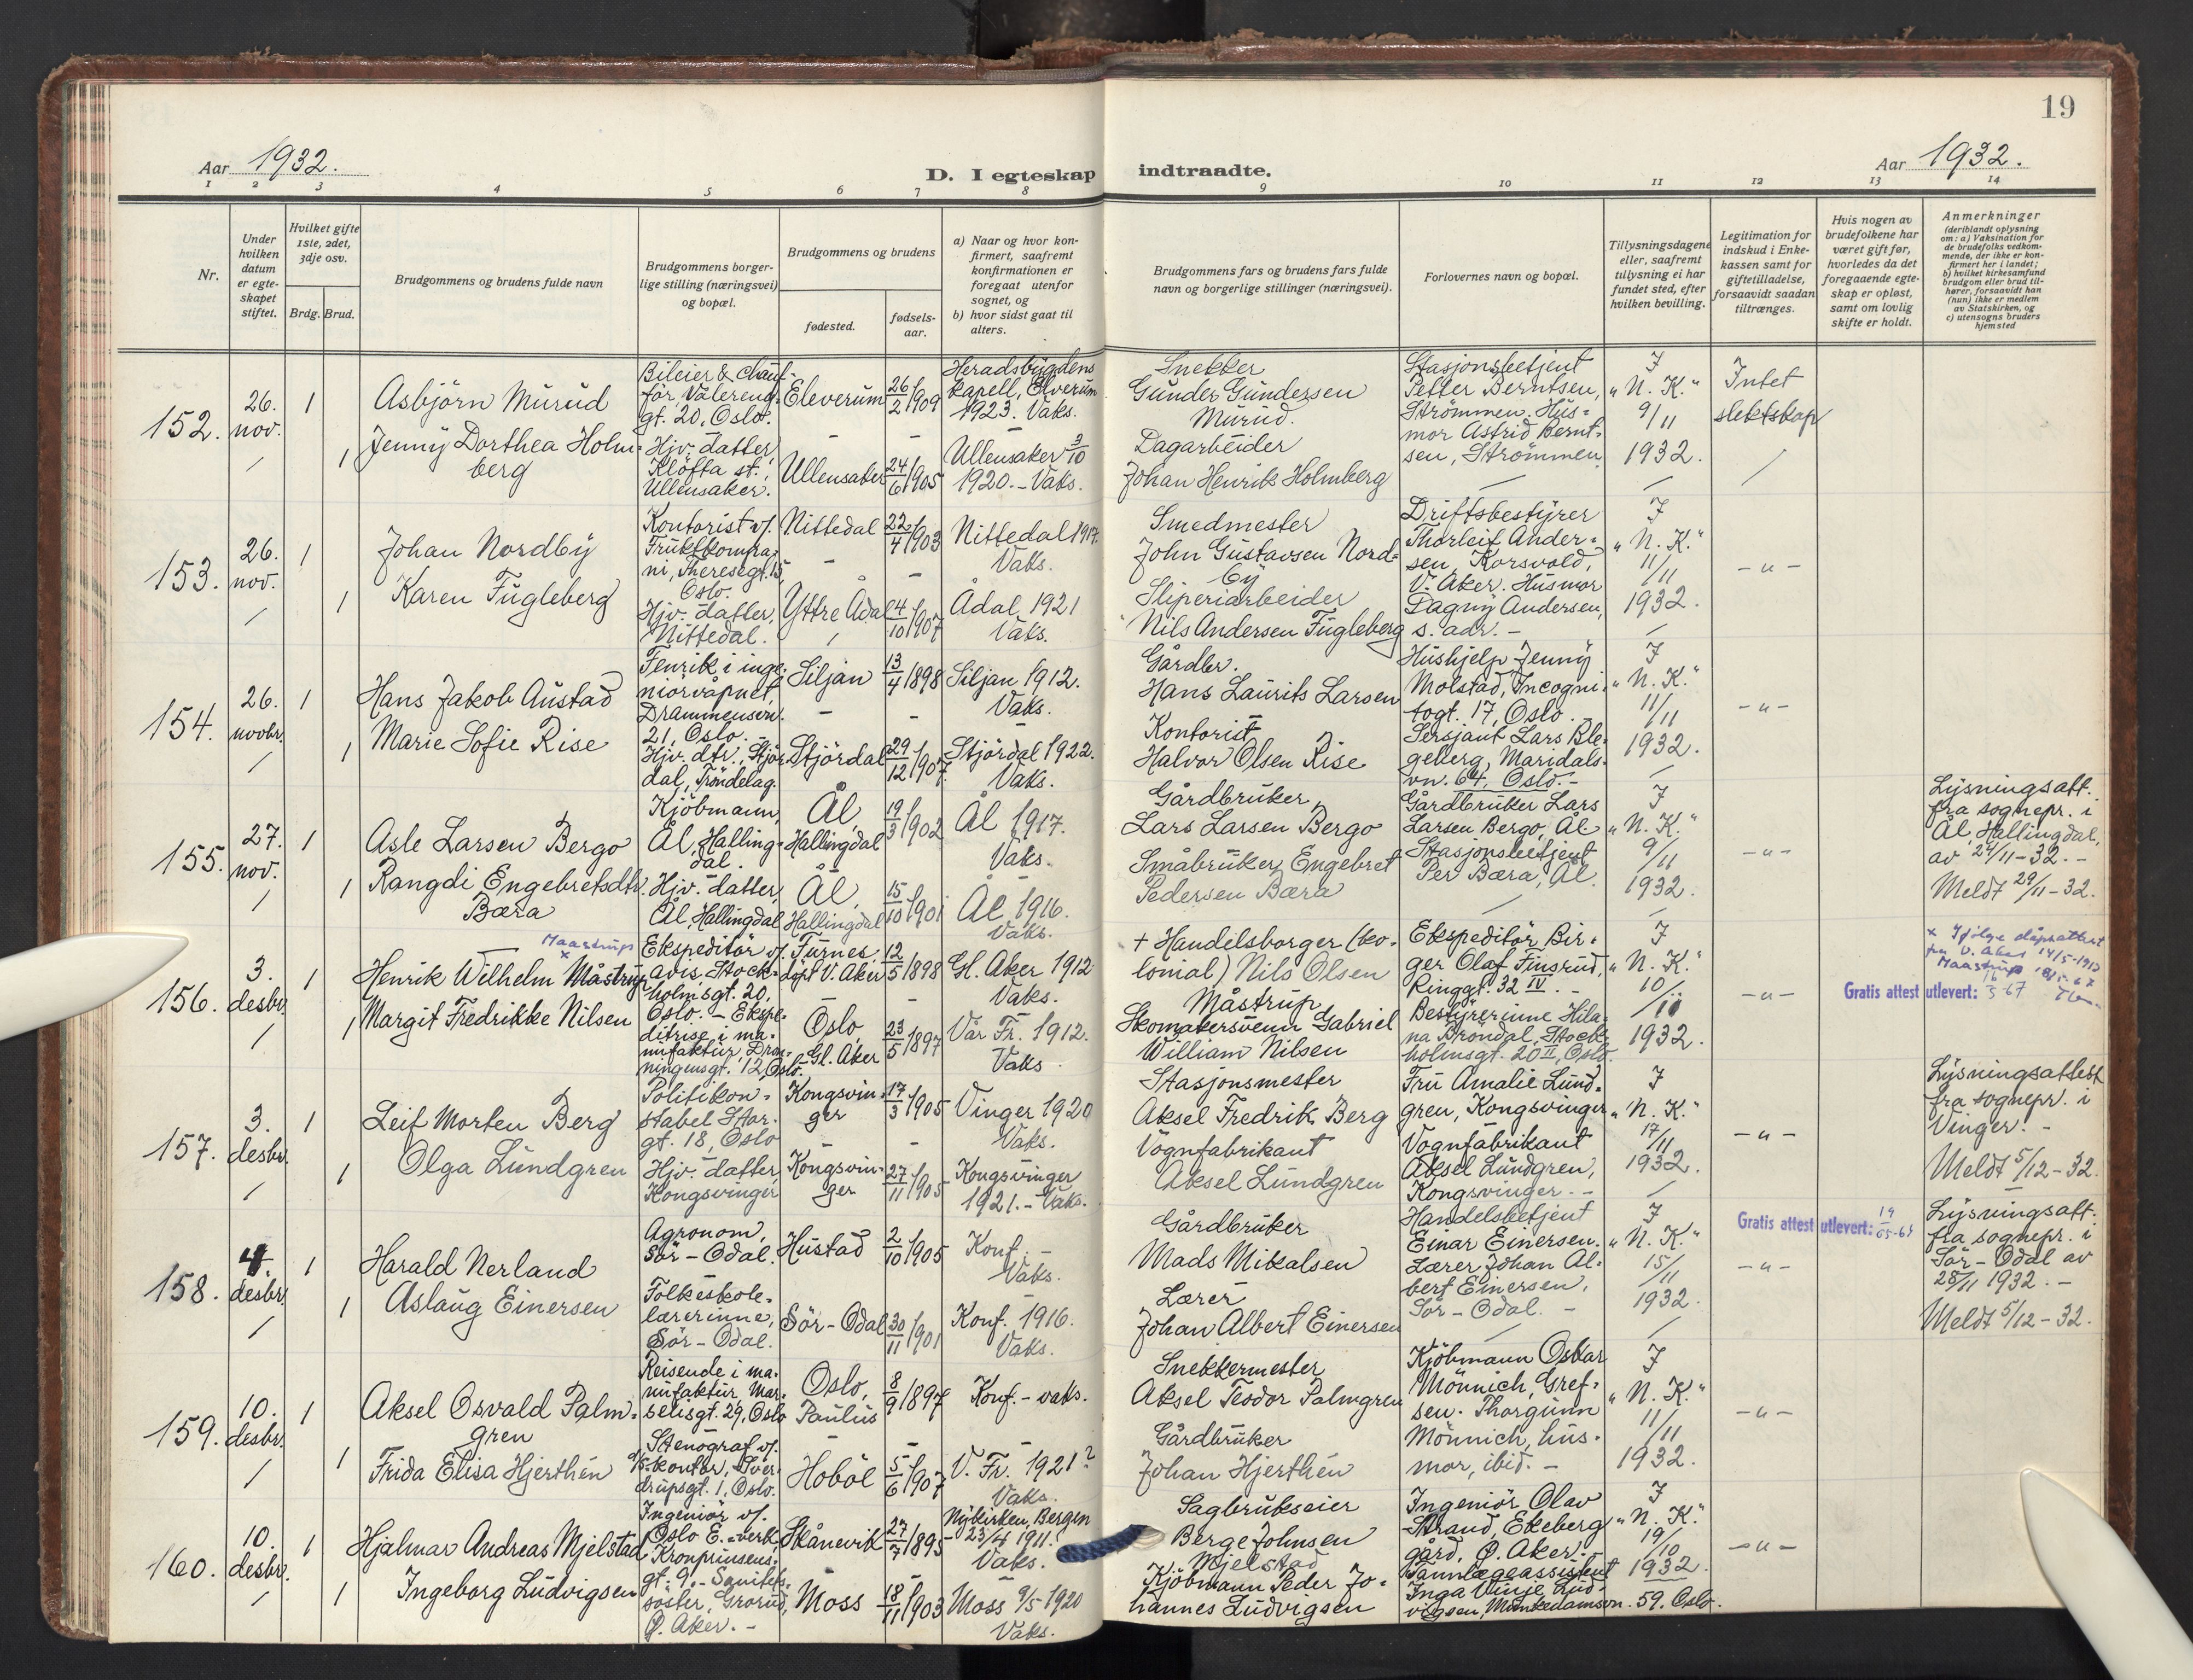 19
Aar 1932.
D. I egteskap indtraadte.
Aar 1932.
1 2 3 4 5 6 7 8 9 10 11 12 13 14
Nr.
Under hvilken datum er egteskapet stiftet.
Hvilket gifte 1ste, 2det, 3dje osv.
Brdg. Brud.
Brudgommens og brudens fulde navn
Brudgommens borgerlige stilling (næringsvei) og bopæl.
Brudgommens og brudens
fødested.
fødselsaar.
a) Naar og hvor konfirmert, saafremt konfirmationen er foregaat utenfor sognet, og
b) hvor sidst gaat til alters.
Brudgommens fars og brudens fars fulde navn og borgerlige stillinger (næringsvei).
Forlovernes navn og bopæl.
Tillysningsdagene eller, saafremt tillysning ei har fundet sted, efter hvilken bevilling.
Legitimation for indskud i Enkekassen samt for giftetilladelse, forsaavidt saadan tiltrænges.
Hvis nogen av brudefolkene har været gift før, hvorledes da det foregaaende egteskap er opløst, samt om lovlig skifte er holdt.
Anmerkninger (deriblandt oplysning om: a) Vaksination for de brudefolks vedkommende, der ikke er konfirmert her i landet; b) hvilket kirkesamfund brudgom eller brud tilhører, forsaavidt han (hun) ikke er medlem av Statskirken, og c) utensogns bruders hjemsted
152.
26. nov.
1
Asbjörn Murud
Bileier & chauför Vålereng. gt. 20, Oslo.
Eleverum
26/2 1909
Heradsbygdens kapell, Elverum 1923. Vaks.
Snekker
Gunder Gundersen Murud.
Stasjonsbetjent Petter Berntsen, Strömmen. Husmor Astrid Berntsen, Strömmen.
I „N. K.“ 9/11 1932.
Intet slektskap
1
Jenny Dorthea Holmberg
Hjv. datter, Klöfta st., Ullensaker.
Ullensaker
24/6 1905
Ullensaker 3/10 1920. - Vaks.
Dagarbeider
Johan Henrik Holmberg
153.
26. nov.
1
Johan Nordby
Kontorist v/. Fruktkompani, Theresegt. 15, Oslo.
Nittedal
22/4 1903
Nittedal 1917. Vaks.
Smedmester
John Gustavsen Nordby
Driftsbestyrer Thorleif Andersen, Korsvold, V. Aker. Husmor Dagny Andersen, s. adr. -
I „N. K.“ 11/11 1932.
- " -
1
Karen Fugleberg
Hjv. datter, Nittedal.
Yttre Ådal
4/10 1907
Ådal 1921 Vaks.
Sliperiarbeider
Nils Andersen Fugleberg
154.
26. novbr.
1
Hans Jakob Austad
Fenrik i ingeniörvåpnet, Drammensvn. 21, Oslo. -
Siljan
13/4 1898
Siljan 1912. Vaks.
Gårdbr.
Hans Laurits Larsen
Hushjelp Jenny Molstad, Incognitogt. 17, Oslo. - Sersjant Lars Blegeberg, Maridalsvn. 64, Oslo. -
I „N. K.“ 11/11 1932.
- " -
1
Marie Sofie Rise
Hjv. dtr., Stjördal, Tröndelag.
Stjördal
29/12 1907
Stjördal 1922. Vaks.
Kontorist
Halvor Olsen Rise
155.
27. nov.
1
Asle Larsen Bergo
Kjöbmann, Ål, Hallingdal.
Ål, Hallingdal
19/3 1902
Ål 1917. Vaks.
Gårdbruker
Lars Larsen Bergo
Gårdbruker Lars Larsen Bergo, Ål Stasjonsbetjent Per Bæra, Ål.
I „N. K.“ 9/11 1932.
- " -
Lysningsatt. fra sognepr. i Ål, Hallingdal, av 24/11-32. -
Meldt 29/11-32.
1
Rangdi Engebretsdtr. Bæra
Hjv. datter, Ål, Hallingdal
Ål, Hallingdal
15/10 1901
Ål 1916. Vaks.
Småbruker Engebret Pedersen Bæra
156.
3. desbr.
1
Maastrup
x
Henrik Wilhelm Måstrup
Ekspeditör v/. avis, Stockholmsgt. 20, Oslo. -
Furnes, döpt V. Aker
12/5 1898
Gl. Aker 1912 Vaks.
+ Handelsborger (kolonial) Nils Olsen Måstrup
Ekspeditör Birger Olaf Finsrud, Ringgt. 32 IV. - Bestyrerinne Hilana Bröndal, Stockholmsgt. 20 II, Oslo.
I „N. K.“ 10/11 1932.
- " -
Gratis attest utlevert: 16/5-67
x Ifölge dåpsattest fra V. Aker 14/5-1912 Maastrup 18/5-67
1
Margit Fredrikke Nilsen
Ekspeditrise i manufaktur, Dronningensgt. 12, Oslo.
Oslo, Gl. Aker
23/5 1897
Vår Fr. 1912. Vaks.
Skomakersvenn Gabriel William Nilsen
157.
3. desbr.
1
Leif Morten Berg
Politikonstabel Storgt. 18, Oslo
Kongsvinger
17/3 1905
Vinger 1920 Vaks.
Stasjonsmester
Aksel Fredrik Berg
Fru Amalie Lundgren, Kongsvinger Vognfabrikant Aksel Lundgren, Kongsvinger. -
I „N. K.“ 17/11 1932.
- " -
Lysningsattest fra sognepr. i Vinger. -
Meldt 5/12-32.
1
Olga Lundgren
Hjv. datter, Kongsvinger
Kongsvinger
27/11 1905
Kongsvinger 1921. - Vaks.
Vognfabrikant
Aksel Lundgren
158.
4. desbr.
1
Harald Nerland
Agronom, Sör-Odal.
Hustad
2/10 1905
Konf. - Vaks.
Gårdbruker
Mads Mikalsen
Handelsbetjent Einar Einersen. Lærer Johan Albert Einersen, Sör-Odal. -
I „N. K.“ 15/11 1932.
- " -
Gratis attest utlevert: 14/05-64
Lysningsatt. fra sognepr. i Sör-Odal av 28/11 1932. -
Meldt 5/12-32.
1
Aslaug Einersen
Folkeskolelærerinne, Sör-Odal.
Sör-Odal
30/11 1901
Konf. 1916. Vaks.
Lærer
Johan Albert Einersen
159.
10. desbr.
1
Aksel Osvald Palmgren
Reisende i manufaktur, Marselisgt. 29, Oslo
Oslo, Paulus
8/9 1897
Konf. - vaks.
Snekkermester
Aksel Teodor Palmgren
Kjöbmann Oskar Mönnich, Grefsen. Thorgunn Mönnich, husmor, ibid. -
I „N. K.“ 11/11 1932.
- " -
1
Frida Elisa Hjerthén
Stenograf v/. kontor, Sverdrupsgt. 1, Oslo.
Hoböl
5/6 1907
V. Fr. 1921? Vaks.
Gårdbruker
Johan Hjerthén
160.
10. desbr.
1
Hjalmar Andreas Mjelstad
Ingeniör v/. Oslo E.-verk, Kronprinsensgt. 9. -
Skånevik
27/7 1895
Nykirken, Bergen 23/4 1911. Vaks.
Sagbrukseier
Berge Johnsen Mjelstad
Ingeniör Olav Strand, Ekeberg gård, Ö. Aker. - Tannlægeassistent Inga Vinje Ludvigsen, Munkedamsvn. 59. Oslo.
I „N. K.“ 19/10 1932.
- " -
1
Ingeborg Ludvigsen
Sanitetssöster, Grorud, Ö. Aker. -
Moss
18/11 1903
Moss 9/5 1920 Vaks.
Kjöbmann Peder Johannes Ludvigsen